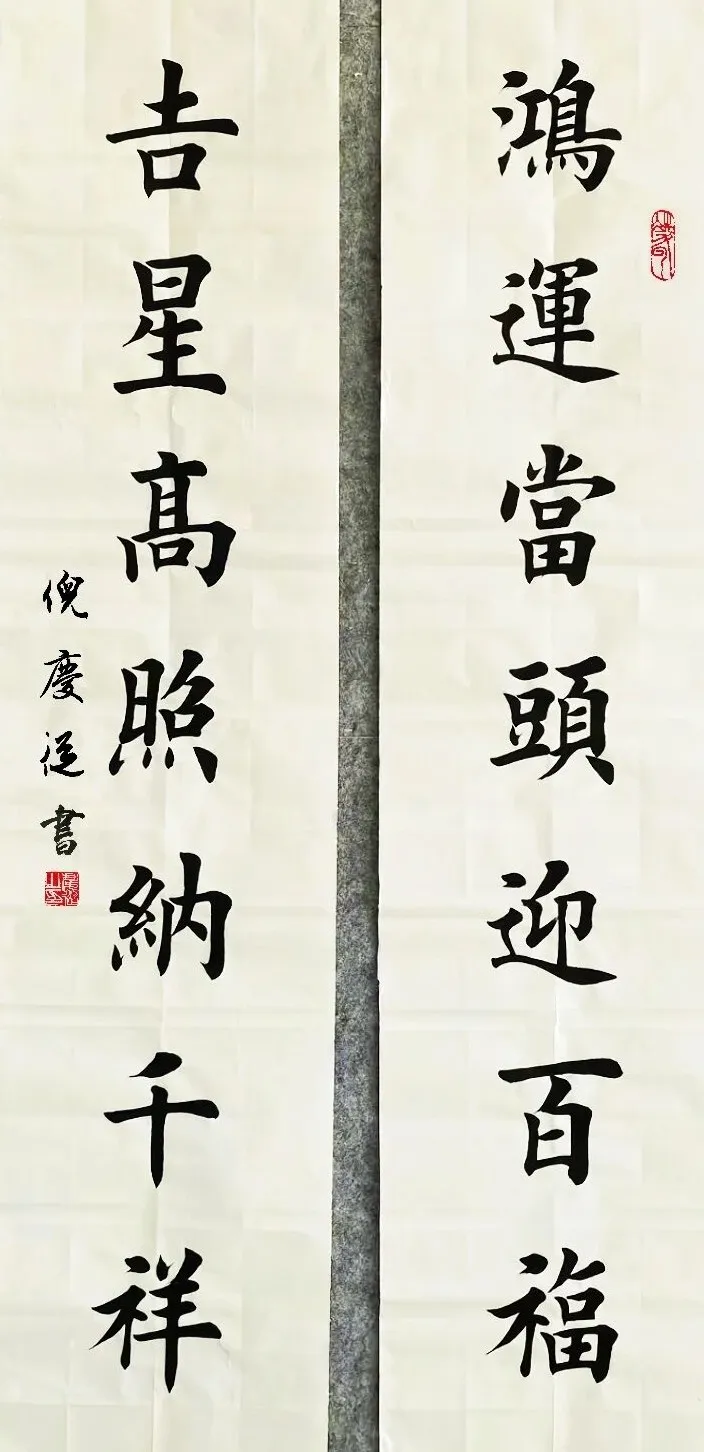 鴻運當頭迎百福
吉星高照納千祥
倪慶從書